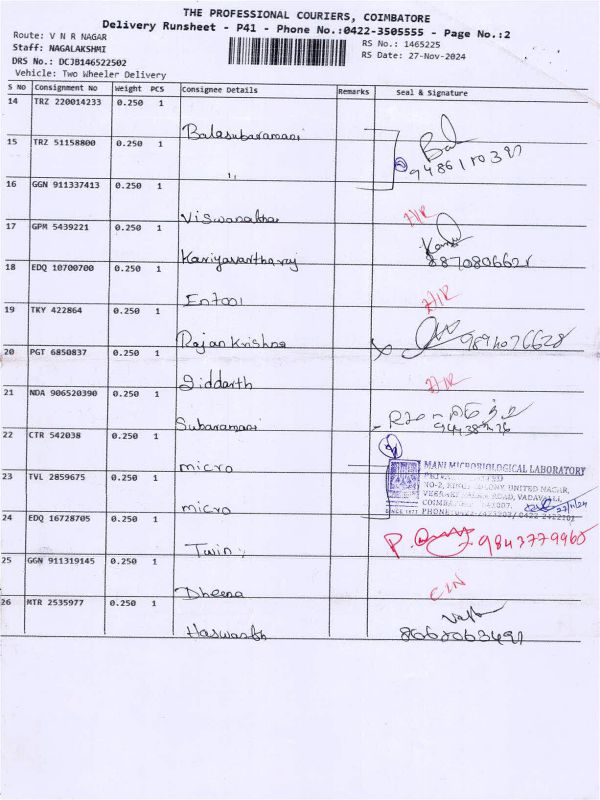 THE PROFESSIONAL COURIERS, COIMBATORE
Delivery Runsheet - P41 - Phone No.:0422-3505555 - Page No.:2
Route: V N R NAGAR
Staff: NAGALAKSHMI
DRS No.: DCJB146522502
Vehicle: Two Wheeler Delivery
RS No.: 1465225
RS Date: 27-Nov-2024
S No Consignment No Weight PCS Consignee Details Remarks Seal & Signature
14 TRZ 220014233 0.250 1
Balasubaramani
15 TRZ 51158800 0.250 1
"
16 GGN 911337413 0.250 1
Viswanathan
17 GPM 5439221 0.250 1
8870806621
18 EDQ 10700700 0.250 1
19 TKY 422864 0.250 1
Rajan Krishna 9894076628
20 PGT 6850837 0.250 1
Siddarth
21 NDA 906520390 0.250 1
Subaramani
22 CTR 542038 0.250 1
micro
MANI MICROBIOLOGICAL LABORATORY
NO-2, KINGS COLONY, UNITED NAGAR,
23 TVL 2859675 0.250 1
micro
24 EDQ 16728705 0.250 1
Twin P. 9843779960
25 GGN 911319145 0.250 1
Dheena
26 MTR 2535977 0.250 1
Haswanth